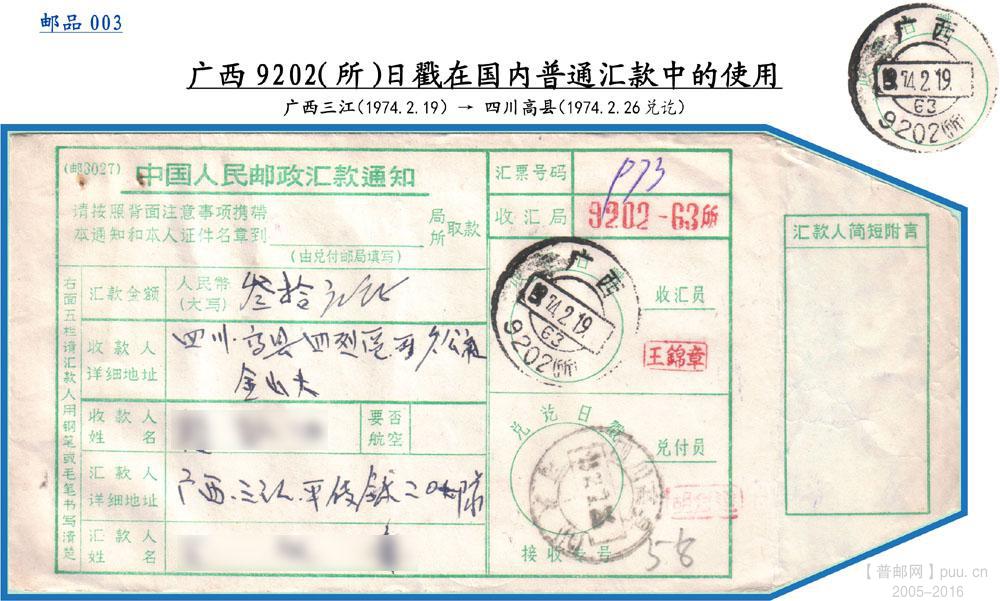 邮品 003
广西 9202(所)日戳在国内普通汇款中的使用
广西三江(1974.2.19) → 四川高县(1974.2.26兑讫)
广西
74.2.19
63
9202(所)
(邮3027) 中国人民邮政汇款通知
请按照背面注意事项携带
本通知和本人证件名章到
局
所
取款
(由兑付邮局填写)
汇款金额
人民币
(大写)
叁拾元
收款人
详细地址
四川.高县四烈区
收款人
姓名
要否
航空
汇款人
详细地址
广西.三江.平
汇款人
姓名
右面五栏请汇款人用钢笔或毛笔书写清楚
汇票号码
P73
收汇局
9202-63所
广西
74.2.19
63
9202(所)
收汇员
王錦章
兑讫日戳
兑付员
接收专号
58
汇款人简短附言
【普邮网】puu.cn
2005-2016